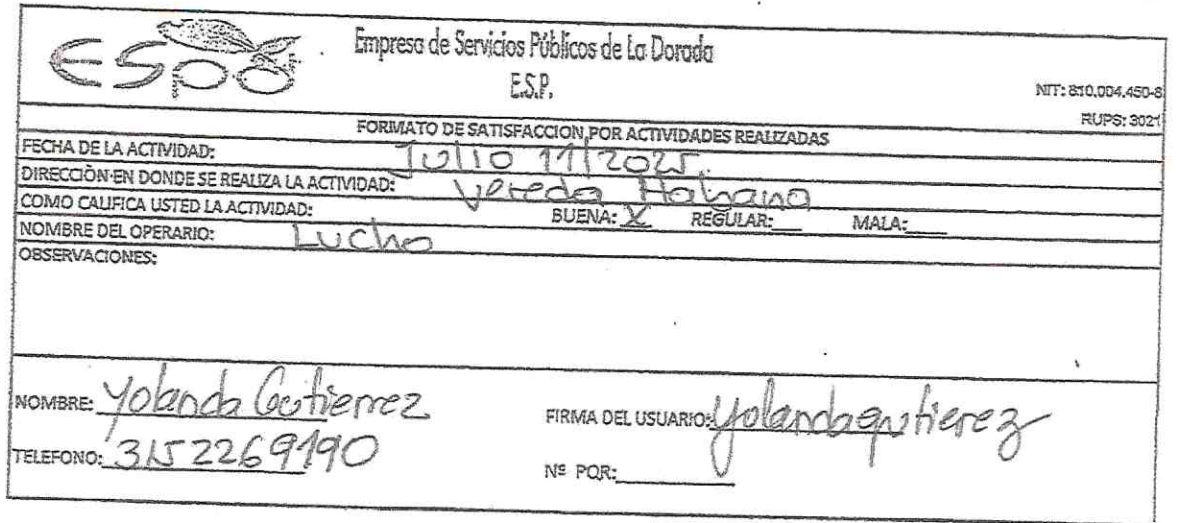 ESPD
Empresa de Servicios Públicos de La Dorada
E.S.P.
NIT: 810.004.450-8
RUPS: 3021
FORMATO DE SATISFACCION POR ACTIVIDADES REALIZADAS
FECHA DE LA ACTIVIDAD: Julio 11/2025.
DIRECCIÒN EN DONDE SE REALIZA LA ACTIVIDAD: Vereda Habana
COMO CALIFICA USTED LA ACTIVIDAD: BUENA: X REGULAR:___ MALA:____
NOMBRE DEL OPERARIO: Lucho
OBSERVACIONES:
NOMBRE: Yolanda Gutierrez FIRMA DEL USUARIO: Yolanda gutierez
TELEFONO: 3152269190 Nº PQR:________